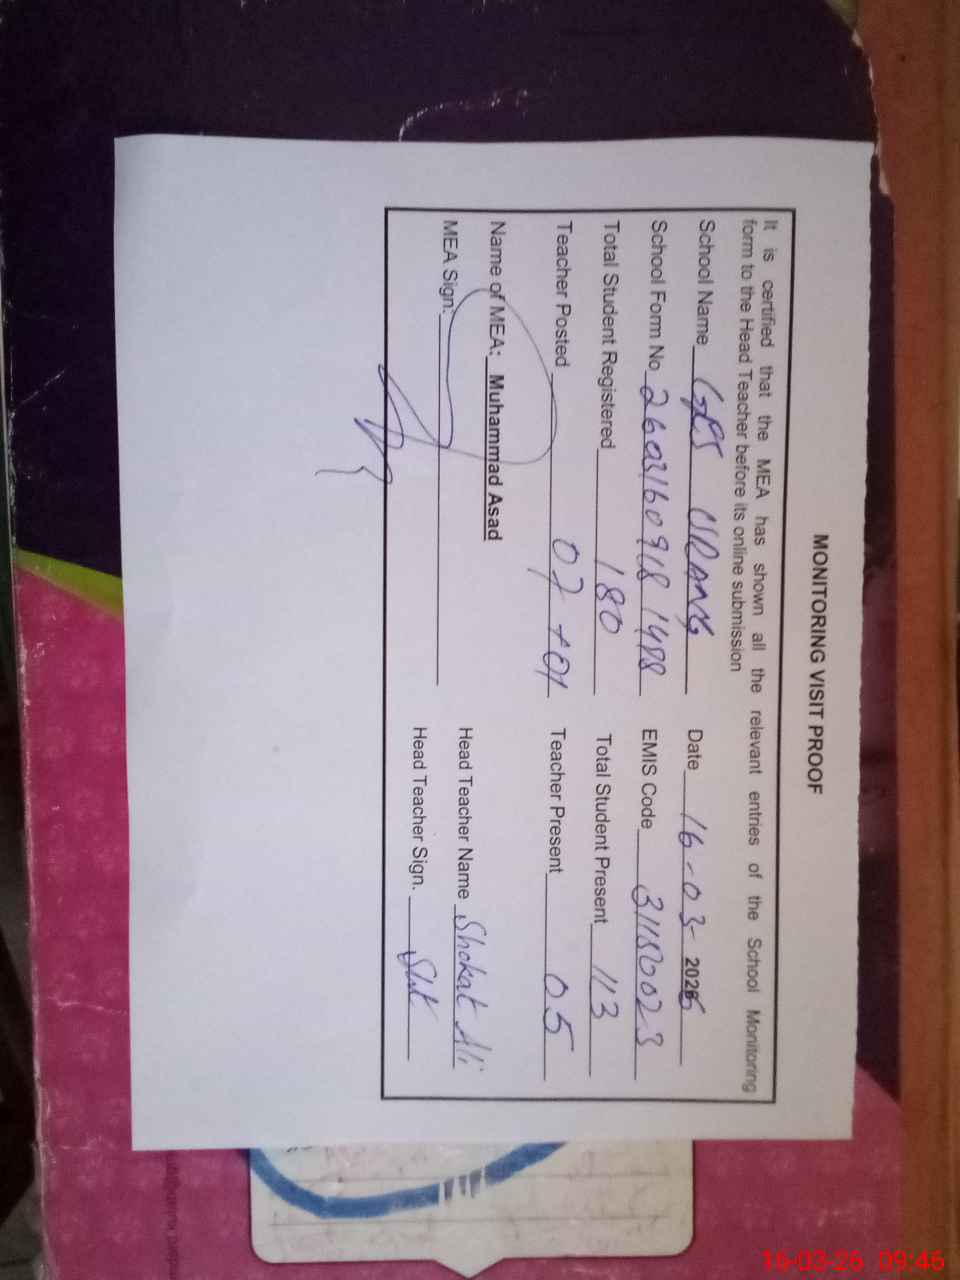 MONITORING VISIT PROOF
It is certified that the MEA has shown all the relevant entries of the School Monitoring
form to the Head Teacher before its online submission
School Name GPS URANG Date 16-03-2026
School Form No EMIS Code
Total Student Registered 180 Total Student Present 113
Teacher Posted 07 +01 Teacher Present 05
Name of MEA: Muhammad Asad
Head Teacher Name Shokat Ali
MEA Sign:
Head Teacher Sign.
16-03-26 09:46